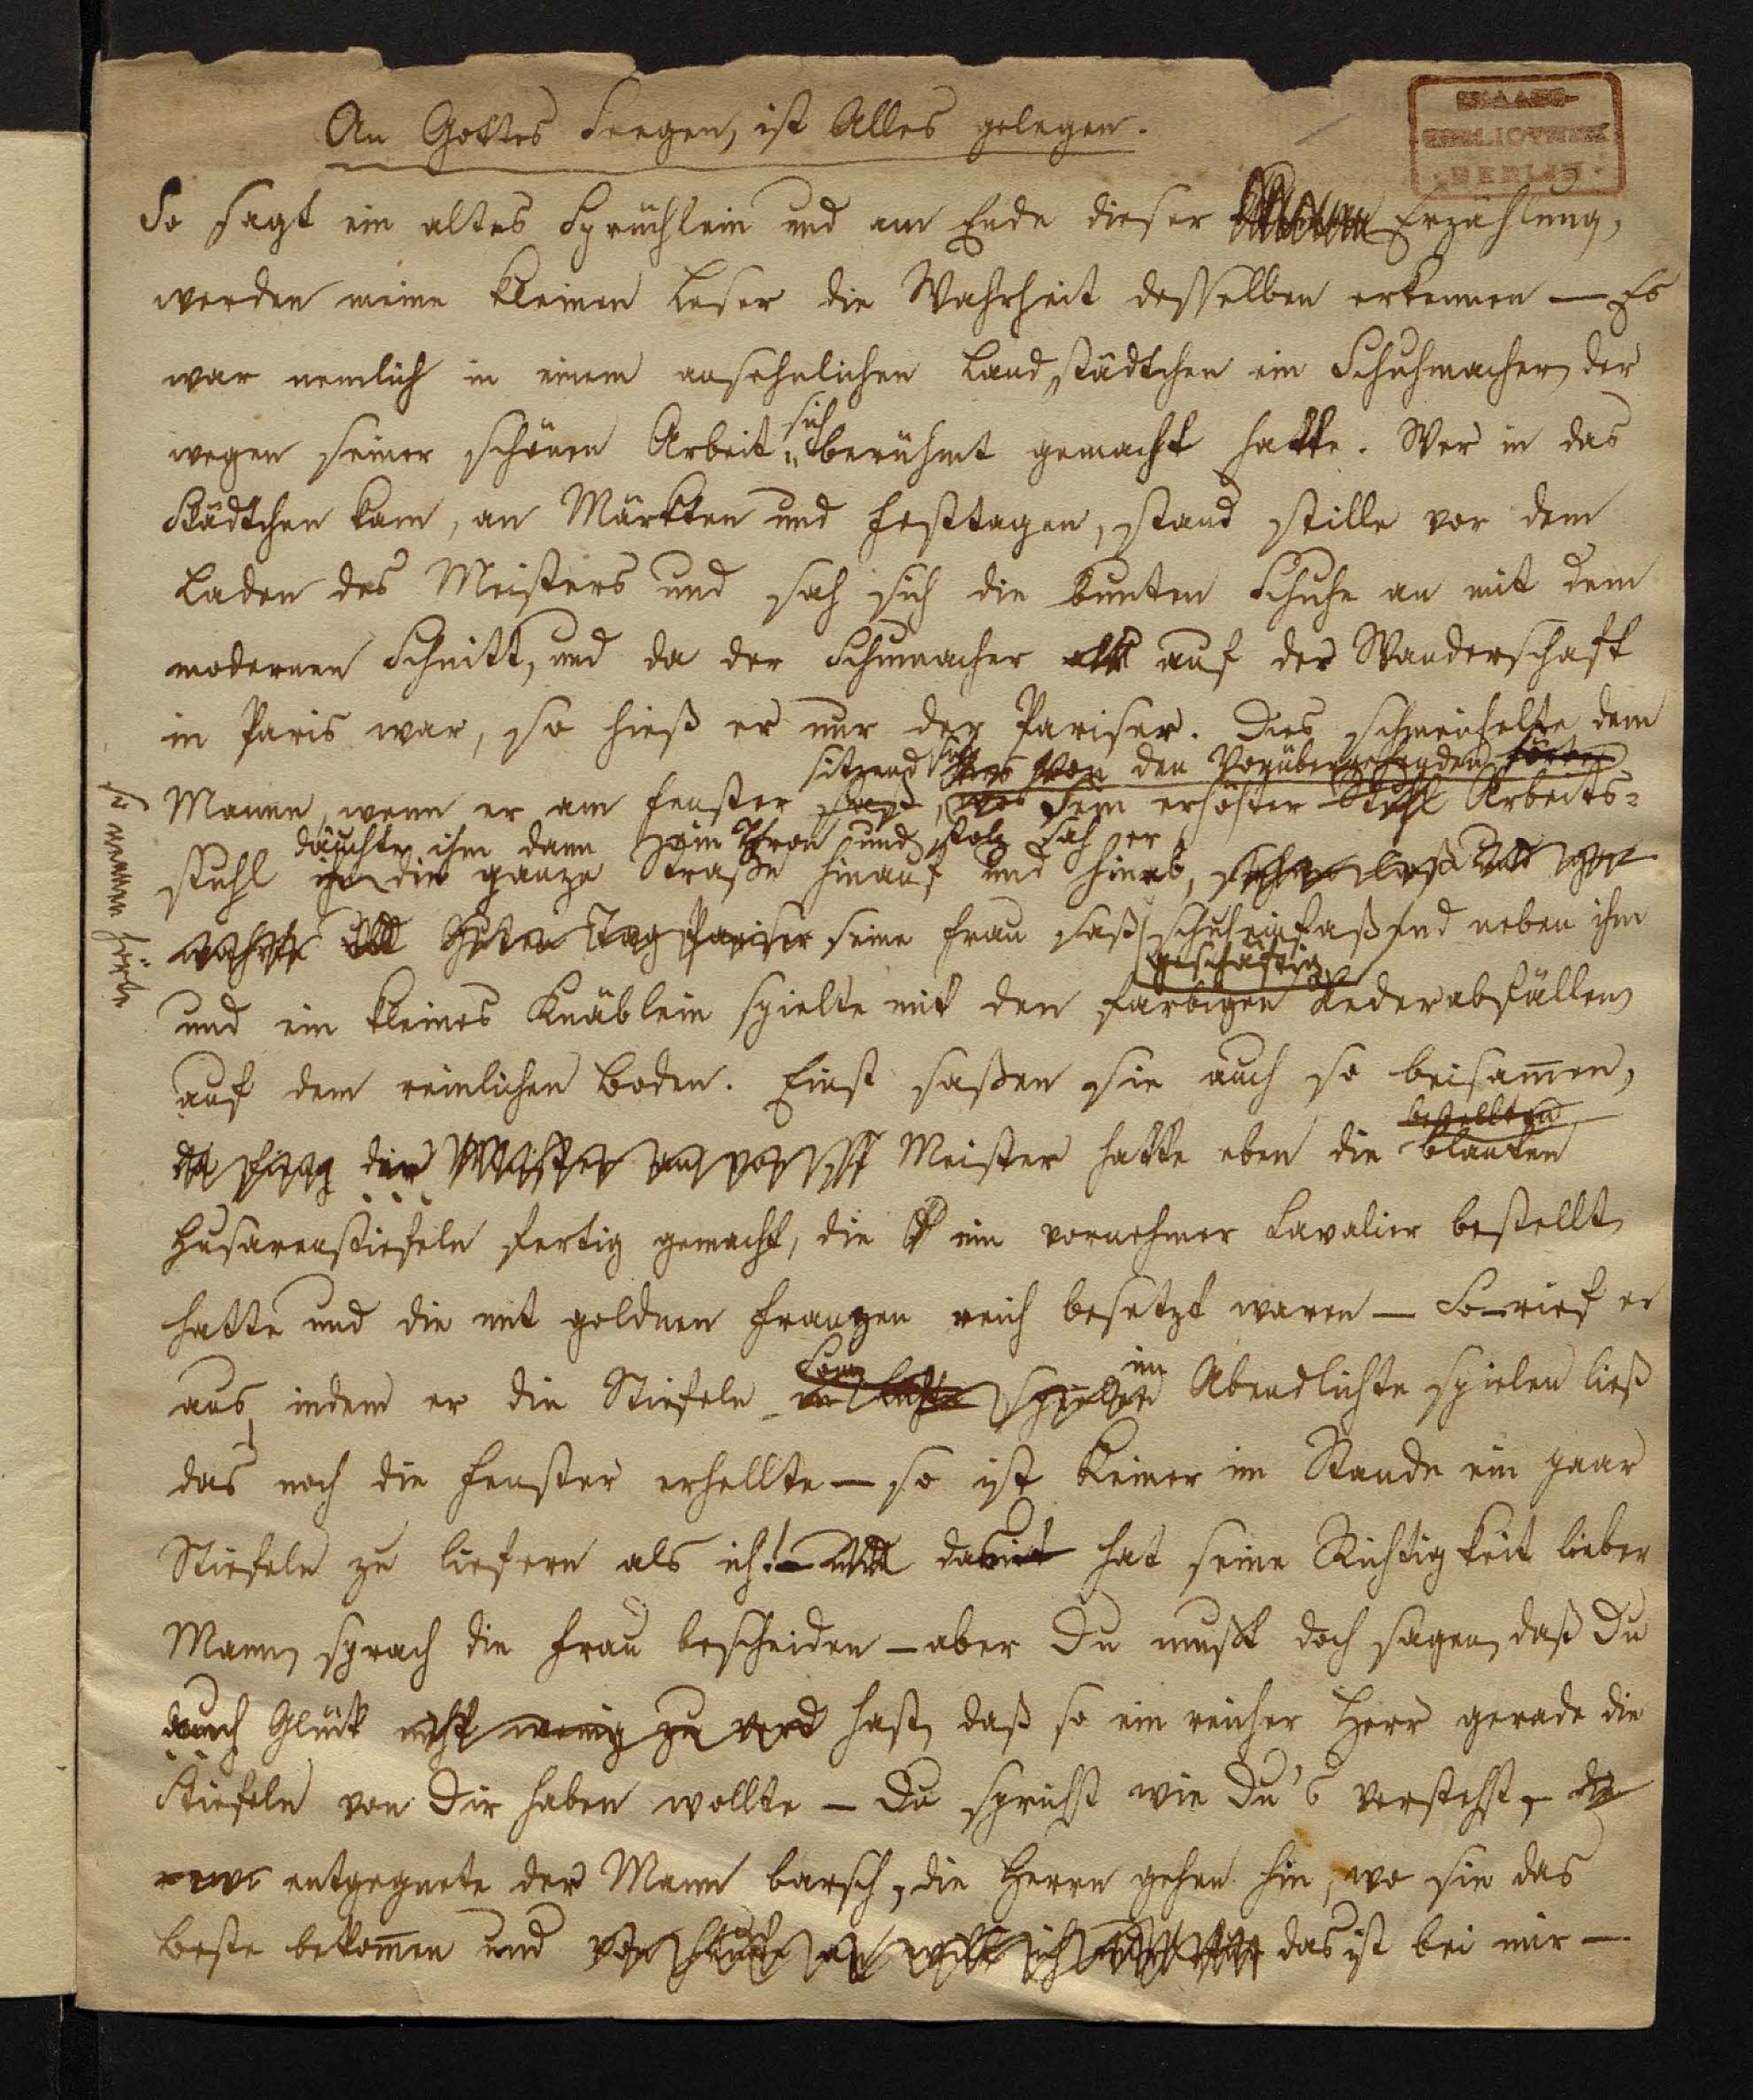 An Gottes Seegen, ist Alles gelegen.
STAATS-
BIBLIOTHEK
· BERLIN ·
So sagt ein altes Sprüchlein und am Ende dieser Erzählung,
werden meine kleinen Leser die Wahrheit desselben erkennen — Es
war nemlich in einem ansehnlichen Landstädtchen ein Schuhmacher, der
wegen seiner schönen Arbeit sich berühmt gemacht hatte. Wer in das
Städtchen kam, an Märkten und Festtagen, stand stille vor dem
Laden des Meisters und sah sich die bunten Schuhe an mit dem
modernen Schnitt, und da der Schumacher auf der Wanderschaft
in Paris war, so hieß er nur der Pariser. Dies schmeichelte dem
sitzend sich von den Vorübergehenden
Manne, wenn er am Fenster saß, Sein erhöhter Stuhl Arbeits-
so nennen hörte
däuchte ihm dann ein Thron und stolz sah er
stuhl die ganze Straße hinauf und hinab,
Guten Tag Pariser seine Frau saß schuheinfaßend neben ihm
geschäftig
und ein kleines Knäblein spielte mit den farbigen Lederabfällen
auf dem reinlichen Boden. Einst saßen sie auch so beisam̄en,
bestellten
da fing der Meister an Meister hatte eben die blanken
Husarenstiefeln fertig gemacht, die ein vornehmer Cavalier bestellt
hatte und die mit goldnen Franzen reich besetzt waren — So – rief er
aus, indem er die Stiefeln im Abendlichte spielen ließ
das noch die Fenster erhellte – so ist keiner im Stande ein paar
Stiefeln zu liefern als ich! – damit hat seine Richtigkeit lieber
Mann, sprach die Frau bescheiden – aber Du mußt doch sagen, daß Du
auch Glück nicht wenig zu verd hast, daß so ein reicher Herr gerade die
Stiefeln von Dir haben wollte – Du sprichst wie Du's verstehst, –
entgegnete der Mann barsch, die Herrn gehen hin, wo sie das
Beste bekom̄en und das ist bei mir —